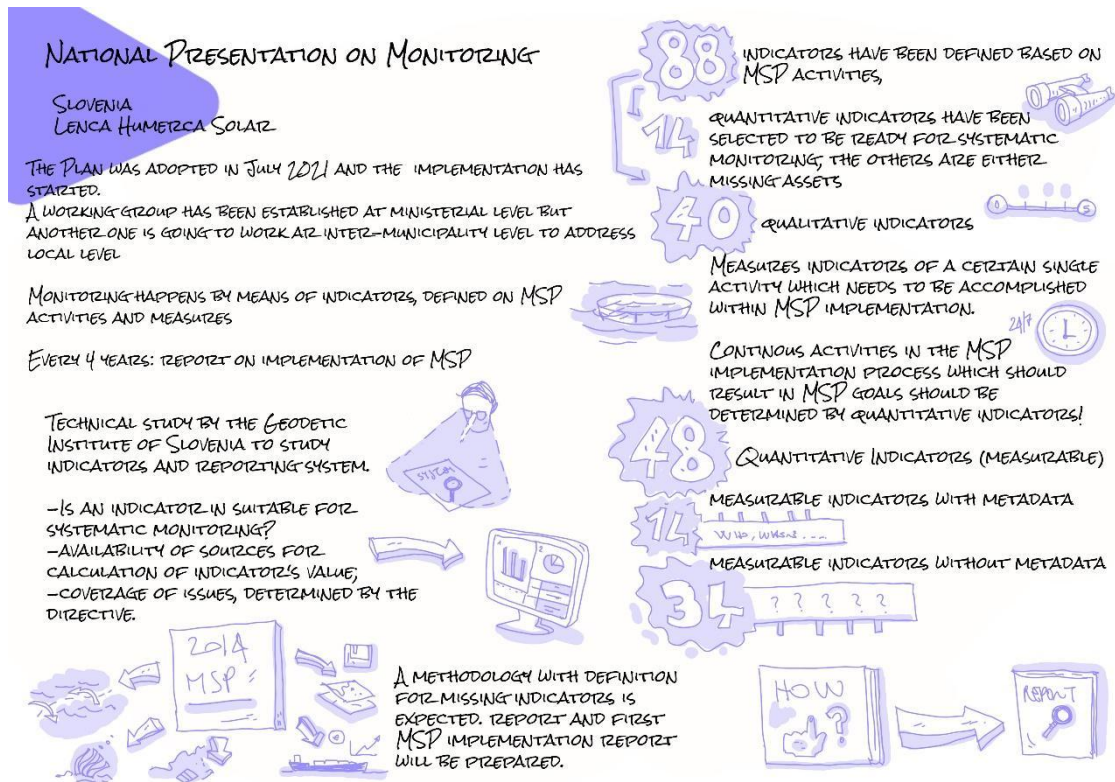 National Presentation on Monitoring
Slovenia
Lenca Humerca Solar
The Plan was adopted in July 2021 and the implementation has
started.
A working group has been established at ministerial level but
another one is going to work ar inter-municipality level to address
local level
Monitoring happens by means of indicators, defined on MSP
activities and measures
Every 4 years: report on implementation of MSP
Technical study by the Geodetic
Institute of Slovenia to study
indicators and reporting system.
-Is an indicator in suitable for
systematic monitoring?
-availability of sources for
calculation of indicator's value;
-coverage of issues, determined by the
directive.
System
1
2
2014
MSP
A methodology with definition
for missing indicators is
expected. report and first
MSP implementation report
will be prepared.
88
indicators have been defined based on
MSP activities,
14
quantitative indicators have been
selected to be ready for systematic
monitoring, the others are either
missing assets
40
qualitative indicators
0 5
Measures indicators of a certain single
activity which needs to be accomplished
within MSP implementation.
24/7
Continous activities in the MSP
implementation process which should
result in MSP goals should be
determined by quantitative indicators!
48
Quantitative Indicators (measurable)
measurable indicators with metadata
14
Who, When....
measurable indicators without metadata
34
? ? ? ? ?
HOW
?
REPORT